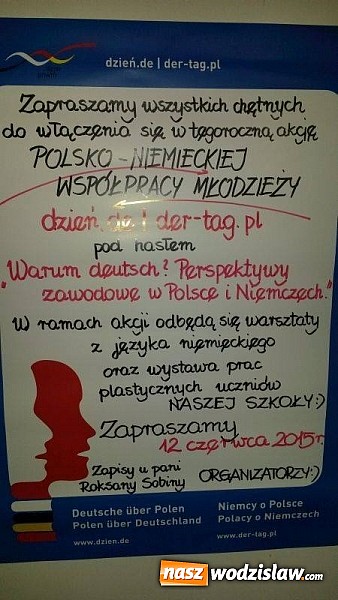 dzień.de | der-tag.pl
Zapraszamy wszystkich chętnych
do włączenia się w tegoroczną akcję
POLSKO-NIEMIECKIEJ
WSPÓŁPRACY MŁODZIEŻY
dzień.de | der-tag.pl
pod hasłem
"Warum deutsch? Perspektywy
zawodowe w Polsce i Niemczech."
W ramach akcji odbędą się warsztaty
z języka niemieckiego
oraz wystawa prac
plastycznych uczniów
NASZEJ SZKOŁY:)
Zapraszamy
12 czerwca 2015r.
Zapisy u pani
Roksany Sobiny
ORGANIZATORZY:)
Deutsche über Polen
Polen über Deutschland
Niemcy o Polsce
Polacy o Niemczech
www.dzien.de
www.der-tag.pl
naszwodzislaw.com